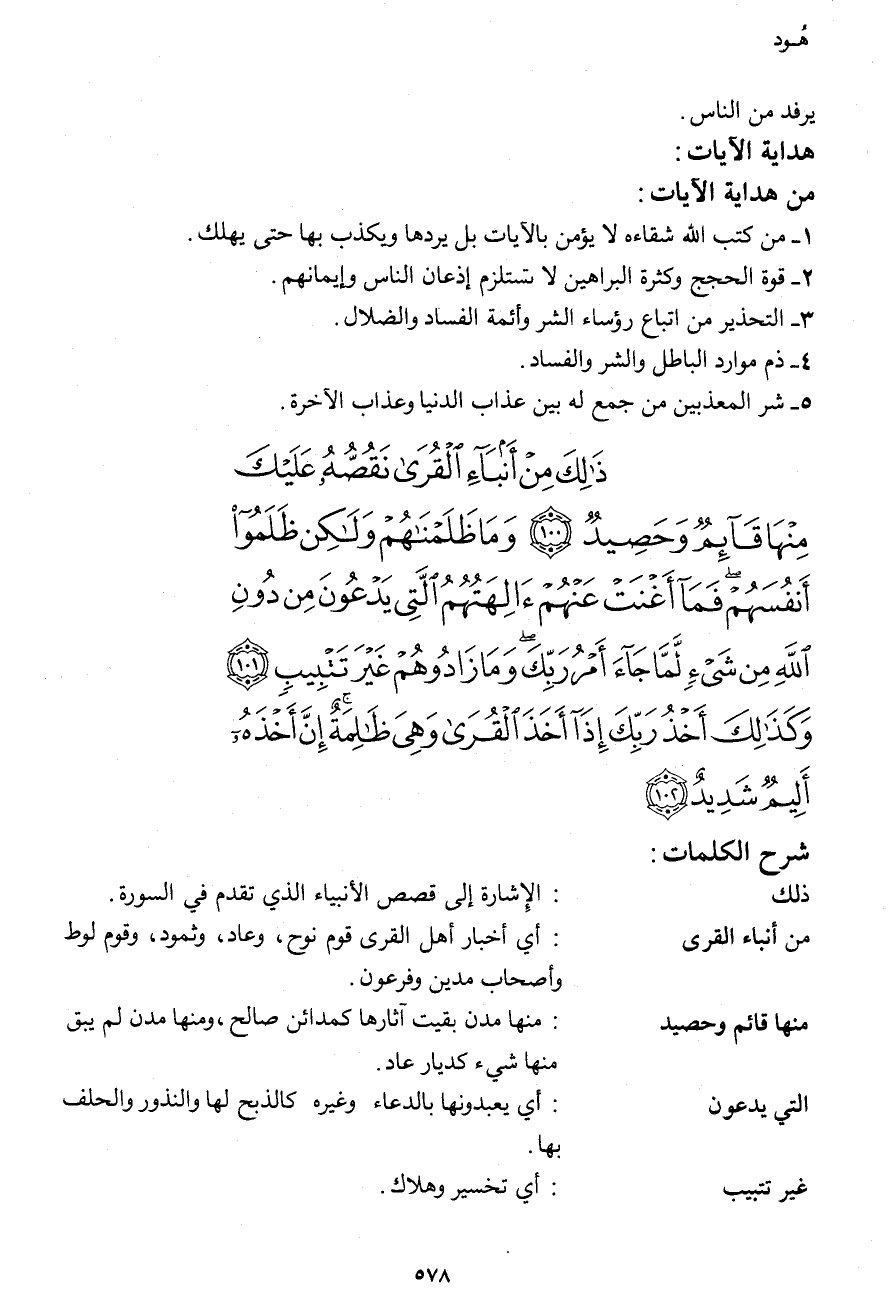 هُـود
يرفد من الناس .
هداية الآيات :
من هداية الآيات :
١ـ من كتب الله شقاءه لا يؤمن بالآيات بل يردها ويكذب بها حتى يهلك .
٢ـ قوة الحجج وكثرة البراهين لا تستلزم إذعان الناس وإيمانهم .
٣ـ التحذير من اتباع رؤساء الشر وأئمة الفساد والضلال .
٤ـ ذم موارد الباطل والشر والفساد .
٥ـ شر المعذبين من جمع له بين عذاب الدنيا وعذاب الآخرة .
ذَٰلِكَ مِنْ أَنۢبَآءِ ٱلْقُرَىٰ نَقُصُّهُۥ عَلَيْكَ
مِنْهَا قَآئِمٌ وَحَصِيدٌ ١٠٠ وَمَا ظَلَمْنَٰهُمْ وَلَٰكِن ظَلَمُوٓا۟
أَنفُسَهُمْ ۖ فَمَآ أَغْنَتْ عَنْهُمْ ءَالِهَتُهُمُ ٱلَّتِى يَدْعُونَ مِن دُونِ
ٱللَّهِ مِن شَىْءٍ لَّمَّا جَآءَ أَمْرُ رَبِّكَ ۖ وَمَا زَادُوهُمْ غَيْرَ تَتْبِيبٍ ١٠١
وَكَذَٰلِكَ أَخْذُ رَبِّكَ إِذَآ أَخَذَ ٱلْقُرَىٰ وَهِىَ ظَٰلِمَةٌ ۚ إِنَّ أَخْذَهُۥٓ
أَلِيمٌ شَدِيدٌ ١٠٢
شرح الكلمات :
ذلك : الإشارة إلى قصص الأنبياء الذي تقدم في السورة .
من أنباء القرى : أي أخبار أهل القرى قوم نوح، وعاد، وثمود، وقوم لوط
وأصحاب مدين وفرعون .
منها قائم وحصيد : منها مدن بقيت آثارها كمدائن صالح ،ومنها مدن لم يبق
منها شيء كديار عاد .
التي يدعون : أي يعبدونها بالدعاء وغيره كالذبح لها والنذور والحلف
بها .
غير تتبيب : أي تخسير وهلاك .
٥٧٨